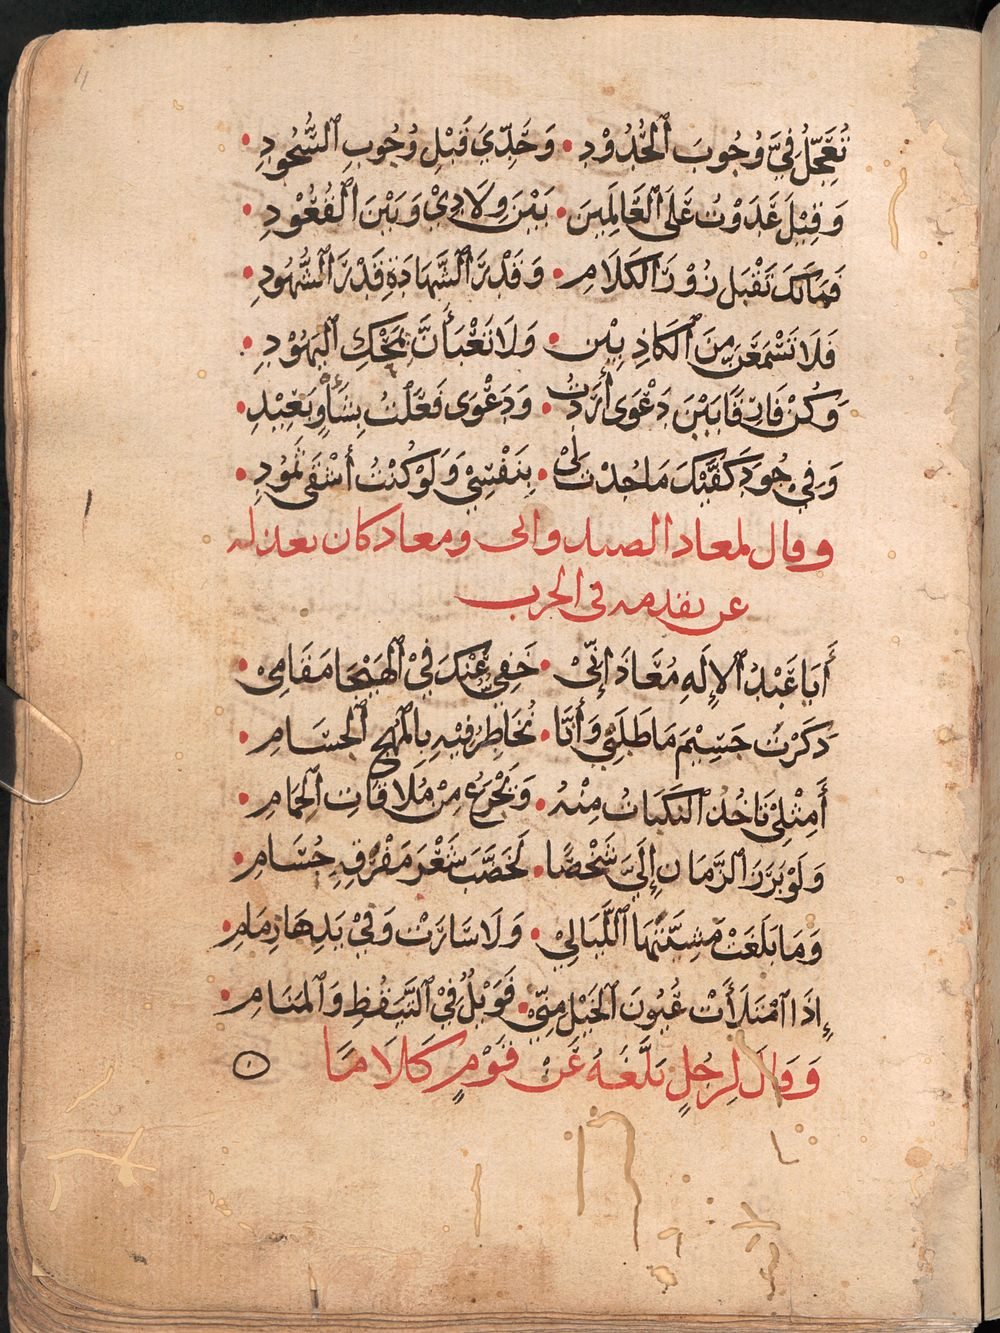 تُعَجِّلُ فِيَّ وُجُوبَ ٱلْحُدُوْدِ • وَحَدِّي قَبْلِ وُجُوبِ ٱلسُّجُودِ •
وَقِيْلَ عَدَوْتُ عَلَى ٱلْعَالَمِيَن • بَيْنَ وِلَادِيْ وَبَيْنَ ٱلْقُعُوْدِ •
فَمَا لَكَ تَقْبَل زُوْرَ الكَلَامِ • وَقَدْرُ ٱلشَّهَادَةِ قَدْرُ ٱلشُّهُودِ •
فَلَا تَسْمَعَنَّ مِنَ ٱلكَاذِبِيْن • وَلَا تَعْبَأَنَّ بِمَحْكِ ٱليَهُوْدِ •
وَكُنْ فَارِقًا بَيْنَ دَعْوَى أَرَدْتُ • وَدَعْوَى فَعَلْتُ بِشَأْوٍ بَعِيْدِ •
وَفِي جُودِ كَفَّيْكَ مَا جُدْتَ لِيْ • بِنَفْسِيْ وَلَوْ كُنْتُ أَشْقَى ثَمُودِ •
وقال لمعاد الصيداوى ومعاد كان يعذله
عن تقدمه فى الحرب
أَبَا عَبْدُ ٱلإِلَهِ مُعَادَ إِنِّىْ • خَفِي عَنْكَ فِيْ ٱلْهَيْجَا مَقَامِىْ •
دَكَرْتَ جَسِيْمَ مَا طَلَبِيْ وَأَنَّا • نُخَاطِرُ فِيْهِ بِالْمُهَجِ ٱلجِسَامِ •
أَمِثْلِيْ تَاخُدُ ٱلنَكَبَاتُ مِنْهُ • وَيَجْزَعُ مِنْ مُلَاقَاتِ ٱلْحِمَامِ •
وَلَوْ بَرَزَ ٱلزَّمَانِ إِلَيَّ شَخْصًا • لَخَضَّبَ شَعْرَ مَفْرِقِهِ حُسَامِ •
وَمَا بَلَغَتْ مَشِيَّتَهَا ٱللَّيَالِيْ • وَلَا سَارَتْ وَفِيْ يَدِهَا زِمَامِ •
إِذَا ٱمْتَلَأَتْ عُيُونَ ٱلخَيْلِ مِنِّيْ • فَوَيْلٌ فِيْ ٱلتَّيَقُظِ وَٱلْمَنَامِ •
وَقَالَ لِرَجُلٍ بَلَّغَهُ عَنْ قَوْمٍ كَلَامًا